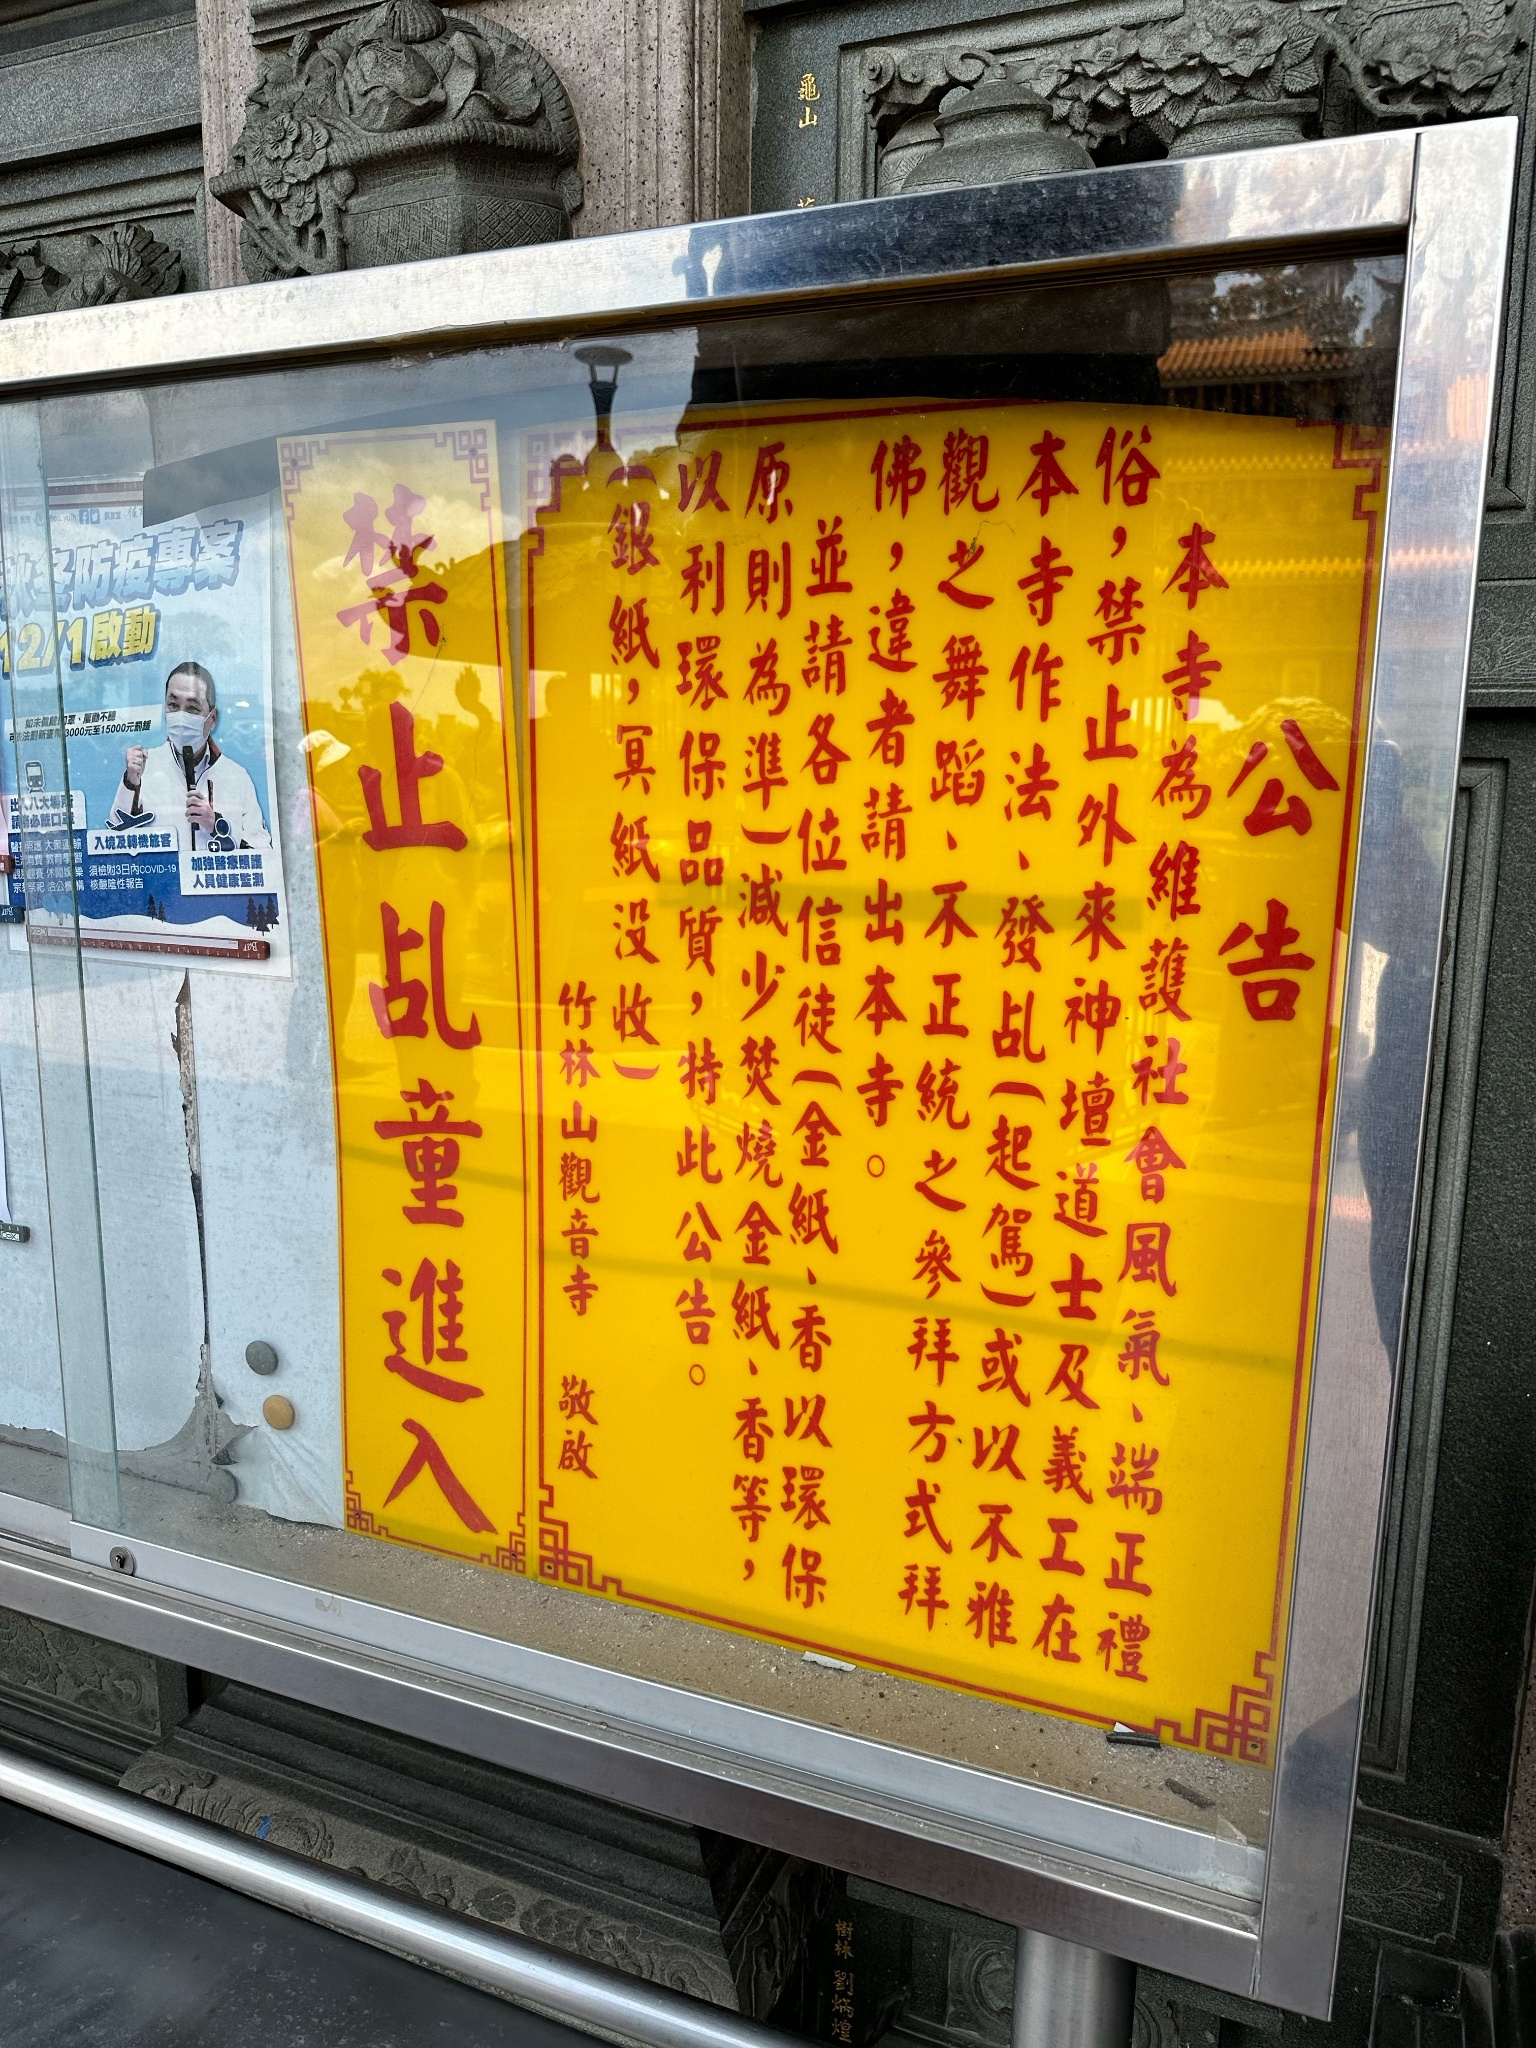 公告
本寺為維護社會風氣、端正禮
俗，禁止外來神壇道士及義工在
本寺作法、發乩(起駕)或以不雅
觀之舞蹈、不正統之參拜方式拜
佛，違者請出本寺。
並請各位信徒(金紙、香以環保
原則為準)減少焚燒金紙、香等，
以利環保品質，特此公告。
(銀紙，冥紙没收)
竹林山觀音寺 敬啟
禁止乩童進入
秋冬防疫專案
12/1啟動
3000元至15000元罰鍰
入境及轉機旅客
須檢附3日內COVID-19
核酸陰性報告
加強醫療照護
人員健康監測
龜山
樹林 劉焫煌